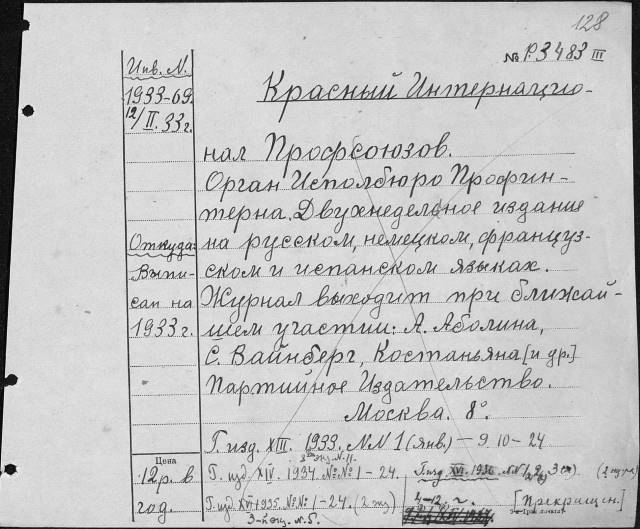 128
№ P.3483 III
Инв. N.
1933-69.
12/II. 33г.
Откуда:
Выпи-
сан на
1933г.
Красный Интернацио-
нал Профсоюзов.
Орган Исполбюро Профин-
терна. Двухнедельное издание
на русском, немецком, француз-
ском и испанском языках.
Журнал выходит при ближай-
шем участии: А. Аболина,
С. Вайнберг, Костаньяна [и др.]
Партийное Издательство.
Москва. 8°.
Цена
12 р. в
год.
Г. изд. XIII. 1933. №№ 1 (янв.) — 9. 10 – 24
Г. изд. XIV. 1934. №№ 1 – 24.
Г. изд. XVI 1935. №№ 1 – 24. (2 экз)
3-й экз. №5.
Г. изд. XVI. 1936. №№ 1, 2, 3
4–12.
[Прекращен.]